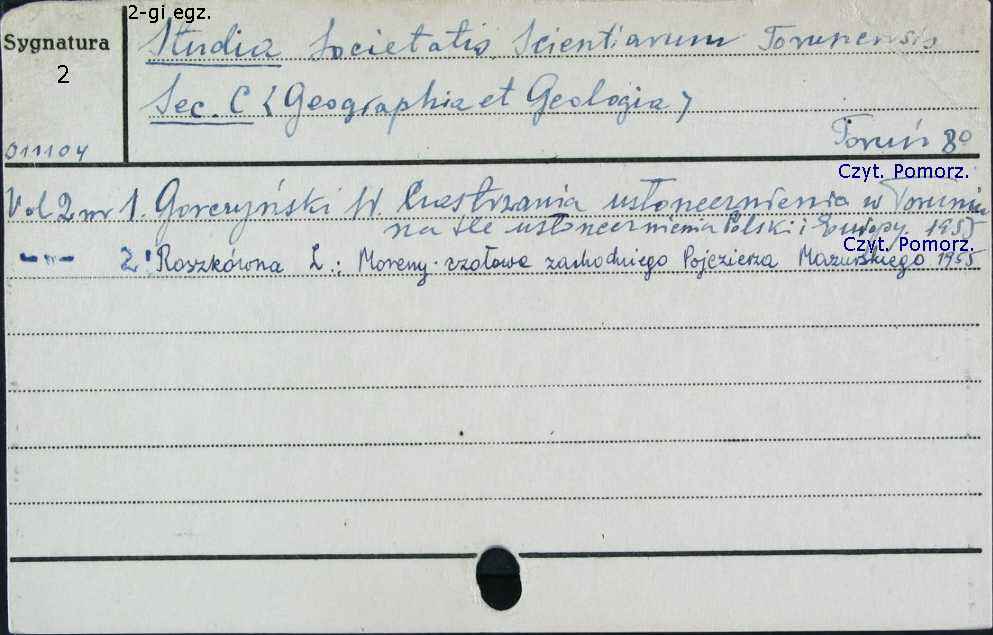 2-gi egz.
Sygnatura
2
011104
Studia Societatis Scientiarum Torunensis
Sec. C (Geographia et Geologia)
Toruń 8°
Czyt. Pomorz.
Vol 2 nr 1. Gorczyński W. usłonecznienia w Toruniu
na tle usłonecznienia Polski i Europy. 1955
Czyt. Pomorz.
-"- 2. Roszkówna L.: Moreny czołowe zachodniego Pojezierza Mazurskiego 1955